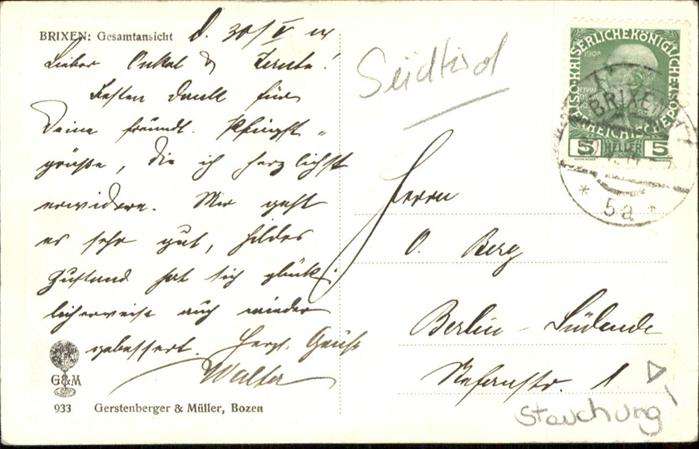 BRIXEN: Gesamtansicht d. 30/V 14
Lieber Onkel & Tante!
Besten Dank für
Deine freundl. Pfingst-
grüße, die ich herzlichst
erwidere. Mir geht
es sehr gut, Hildes
Zustand hat sich glück-
licherweise auch wieder
gebessert. Herzl. Grüße
Walter
G&M
933 Gerstenberger & Müller, Bozen
Seidtirol
KAISERLICHE KÖNIGLICHE
1908
ÖSTERREICHISCHE POST
5 HELLER 5
BRIXEN
* 5a *
Herrn
O. Berg
Berlin-Südende
1
Stauchung